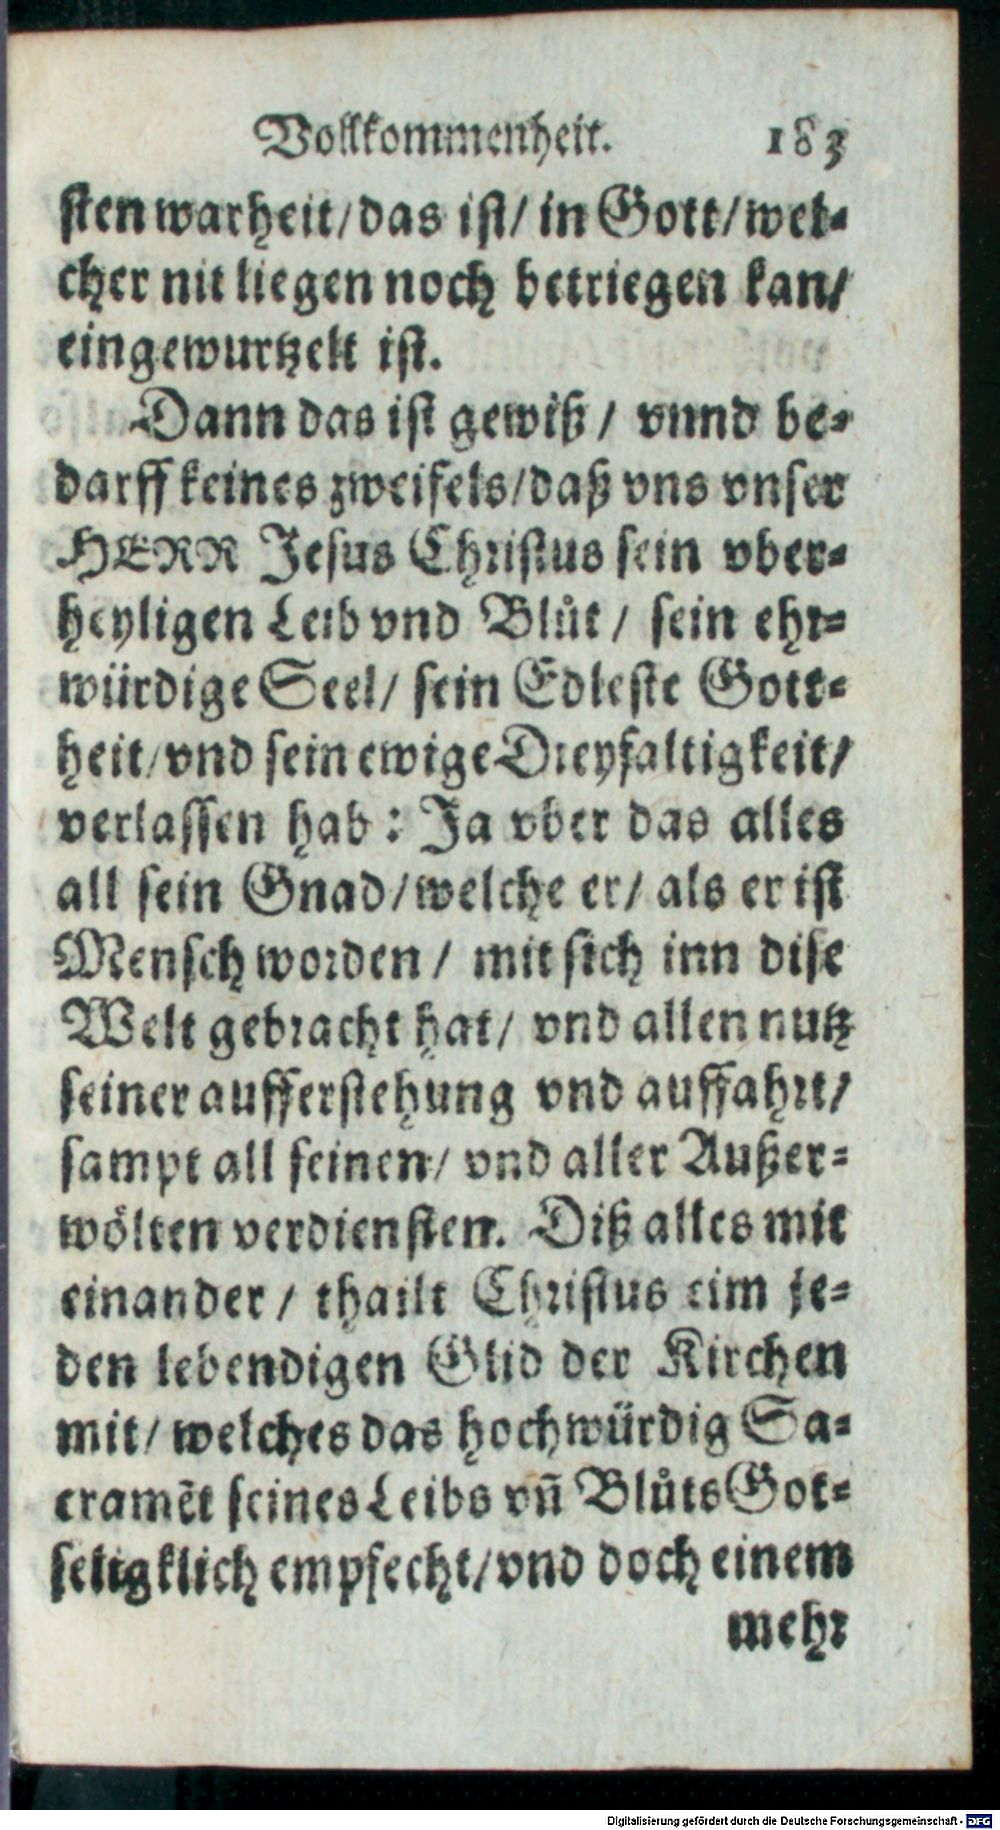 Vollkommenheit. 183
sten warheit/das ist/ in Gott/wel-
cher nit liegen noch betriegen kan/
eingewurtzelt ist.
Dann das ist gewiß / vnnd be-
darff keines zweifels/daß vns vnser
HERR Jesus Christus sein vber-
heyligen Leib vnd Blůt / sein ehr-
würdige Seel/ sein Edleste Gott-
heit/vnd sein ewige Dreyfaltigkeit/
verlassen hab : Ja vber das alles
all sein Gnad/welche er/ als er ist
Mensch worden / mit sich inn dise
Welt gebracht hat/ vnd allen nutz
seiner aufferstehung vnd auffahrt/
sampt all seinen/ vnd aller Außer-
wölten verdiensten. Diß alles mit
einander / thailt Christus eim je-
den lebendigen Glid der Kirchen
mit/ welches das hochwürdig Sa-
cramẽt seines Leibs vñ Blůts Got-
seligklich empfecht/vnd doch einem
mehr
Digitalisierung gefördert durch die Deutsche Forschungsgemeinschaft - DFG